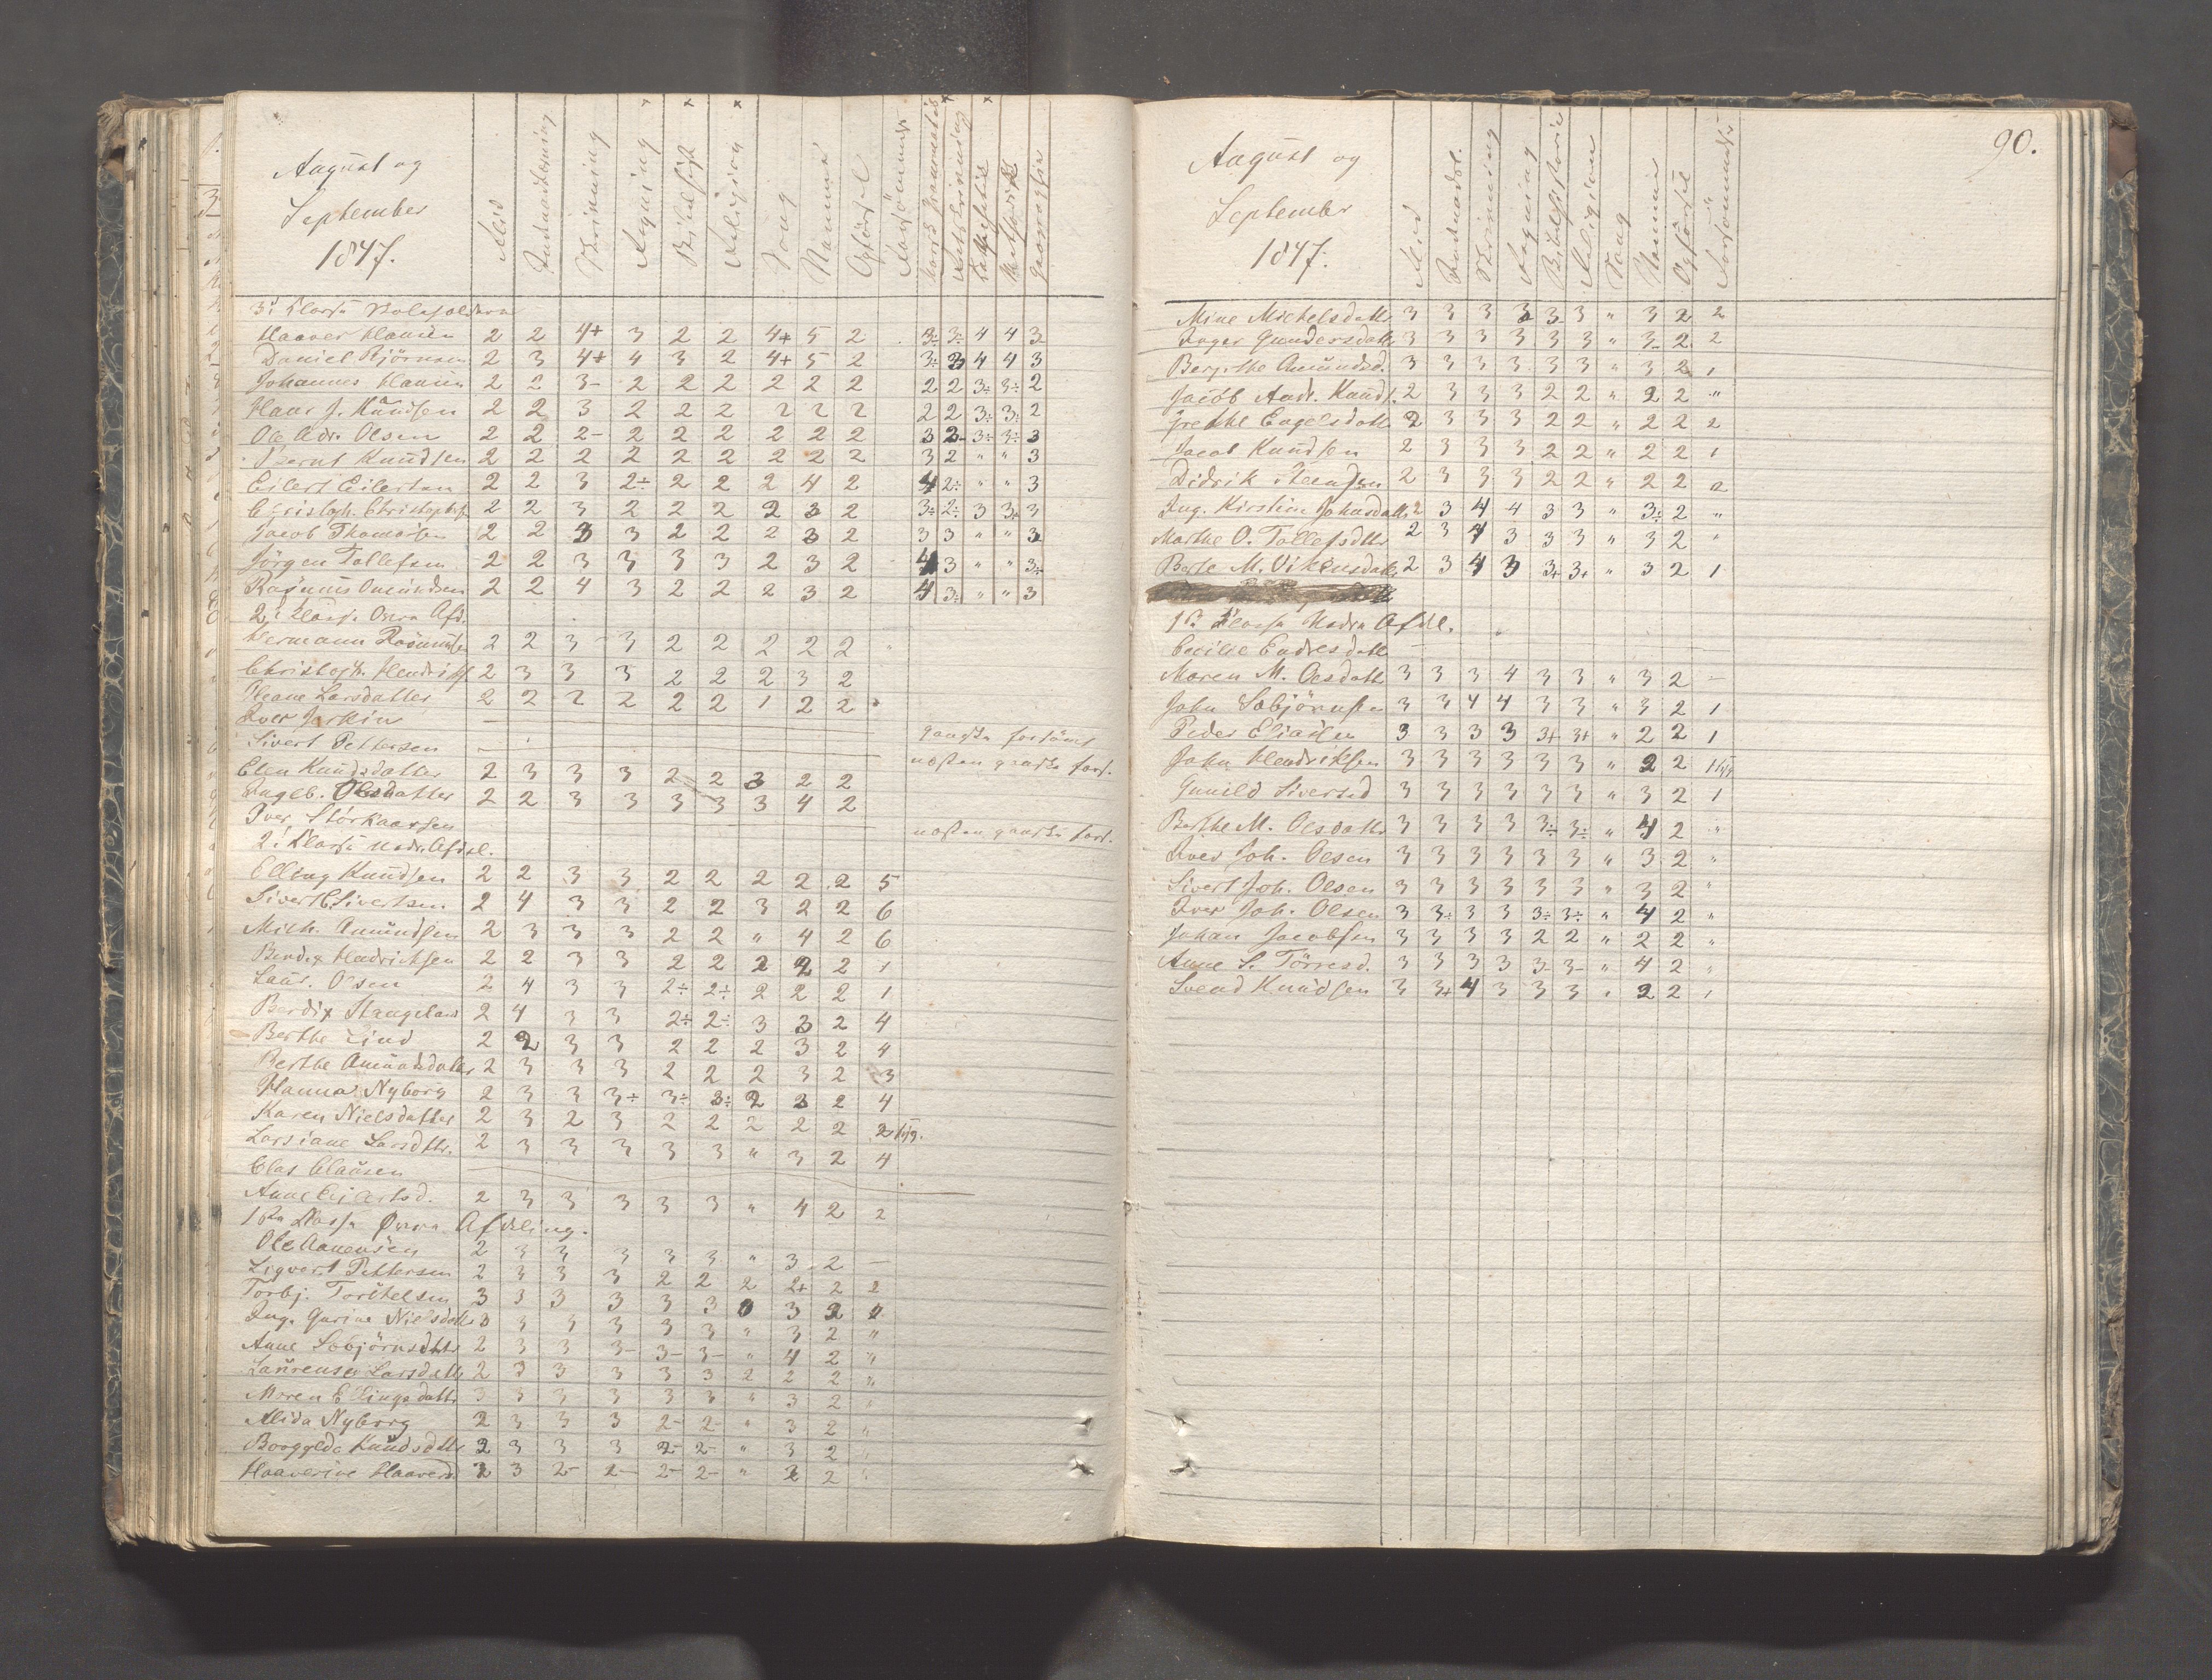 August og
September
1847.
Flid
Indenadslæsning
Skrivning
Regning
Religion
Sang
Opførsel
Forsømmelser
Geographie
3die Klasse
Haaver Hansen 2 2 4+ 3 2 2 4+ 5 2 3÷ 3÷ 4 4 3
Daniel Bjørnsen 2 3 4+ 4 3 2 4+ 5 2 3÷ 3 4 4 3
Johannes Hansen 2 2 3- 2 2 2 2 2 2 2 2 3÷ 3÷ 2
Hans J. Knudsen 2 2 3 2 2 2 2 2 2 2 2 3÷ 3÷ 2
Ole Adr. Olsen 2 2 2- 2 2 2 2 2 2 3 2- 3÷ 3÷ 3
Bernt Knudsen 2 2 2 2 2 2 2 2 2 3 2 " " 3
Eilert Eilertsen 2 2 3 2÷ 2 2 2 4 2 4 2÷ " " 3
Christoph. Christophs. 2 2 3 2 2 2 2 3 2 3÷ 2÷ 3 3+ 3
Jacob Thomassen 2 2 3 3 2 2 2 3 2 3 3 " " 3
Jörgen Tollefsen 2 2 3 3 3 3 2 3 2 4 3 " " 3÷
Rasmus Omundsen 2 2 4 3 2 2 2 3 2 4 3÷ " " 3
2. Klasse Øvre Afd.
Hermann Rasmussen 2 2 3 - 3 2 2 2 2 2 "
Christoph. Hendriks. 2 3 3 3 2 2 2 3 2
Oleane Larsdatter 2 2 2 2 2 2 1 2 2 "
Iver
Sivert Pettersen ganske forsömt
Elen Knudsdatter 2 3 3 3 2 2 3 2 2 næsten ganske fors.
Ingeb. Olesdatter 2 2 3 3 3 3 3 4 2
Iver Storkaarsen næsten ganske fors.
2. Klasse Nedre Afdel.
Elling Knudsen 2 2 3 3 2 2 2 2 2 5
Sivert C. Sivertsen 2 4 3 3 2 2 3 2 2 6
Mich. Amundsen 2 3 3 3 2 2 " 4 2 6
Bendix Hendricksen 2 2 3 3 2 2 2 2 2 1
Laur. Olsen 2 4 3 3 2÷ 2÷ 2 2 2 1
Berdix Stangeland 2 4 3 3 2÷ 2÷ 3 3 2 4
Berthe Lind 2 2 3 3 2 2 2 3 2 4
Berthe Amundsdatter 2 3 3 3 2 2 2 3 2 3
Hanna Nyborg 2 3 3 3÷ 3÷ 3÷ 2 3 2 4
Karen Nielsdatter 2 3 2 3 2 2 2 2 2 2
Larsiane Larsdtr. 2 3 3 3 3 3 " 3 2 4
Clas Clausen
Anne Eilertsd. 2 3 3 3 3 3 " 4 2 2
1ste Klasse Øvre Afdeling.
Ole Aanensen 2 3 3 3 3 3 " 3 2 —
Sigvert Pettersen 2 3 3 3 2 2 2 2+ 2 2
Torbj. Torkelsen 3 3 3 3 3 3 0 3 2 1
Ing. Gurine Nielsdatter 3 3 3 3 3 3 " 3 2 "
Anne Sebjörnsdttr 2 3 3 3- 3- 3- " 4 2 "
Laurense Larsdattr 2 3 3 3 3 3 2 2 2 "
Maren Ellingsdattr 3 3 3 3 3 3 " 3 2 "
Alida Nyborg 2 3 3 3 2- 2- " 3 2 "
Boogelde Knudsdttr 2 3 3 3 2- 2- " 3 2 "
Haaverine Haaversd. 2 3 2- 2- 2- 2- " 2 2 "
90.
August og
September
1847.
Flid
Indenadsl.
Skrivning
Regning
Bibelhistorie
Religion
Sang
Opförsel
Forsömmelser
Mine Michelsdattr 3 3 3 3 3 3 " 3 2 2
Inger Gundersdattr 3 3 3 3 3 3 " 3- 2 2
Bergithe Amundsd. 3 3 3 3 3 3 " 3 2 1
Jacob Andr. Knuds. 2 3 3 3 2 2 " 2 2 "
Grethe Engelsdattr 2 3 3 3 2 2 " 2 2 2
Jacob Knudsen 2 3 3 3 2 2 " 2 2 1
Didrik Svendsen 2 3 3 3 2 2 " 2 2 2
Ing. Kirstine Johnsdattr 2 3 4 4 3 3 " 3÷ 2 "
Marthe O. Tollefsdttr 2 3 4 3 3 3 " 3 2 "
Berte M. Vikensdattr 2 3 4 3 3+ 3+ " 3 2 1
1ste Klasse Nedre Afdel.
Cecilie Endresdattr —
Maren M. Olsdattr 3 3 3 4 3 3 " 3 2 —
John Sebjörnsen 3 3 4 4 3 3 " 3 2 1
Peder Eliassen 3 3 3 3 3+ 3+ " 2 2 1
John Hendriksen 3 3 3 3 3 3 " 2 2 1
Gunild Siversd 3 3 3 3 3 3 " 3 2 1
Berthe M. Olsdattr 3 3 3 3 3÷ 3÷ " 4 2 "
Iver Joh. Olsen 3 3 3 3 3 3 " 3 2 "
Sivert Joh. Olsen 3 3 3 3 3 3 " 3 2 "
Iver Joh. Olsen 3 3÷ 3 3 3÷ 3÷ " 4 2 "
Johan Jacobsen 3 3 3 3 2 2 " 2 2 "
Anne S. Törresd. 3 3 3 3 3- 3- " 4 2 "
Svend Knudsen 3 3+ 4 3 3 3 " 2 2 1